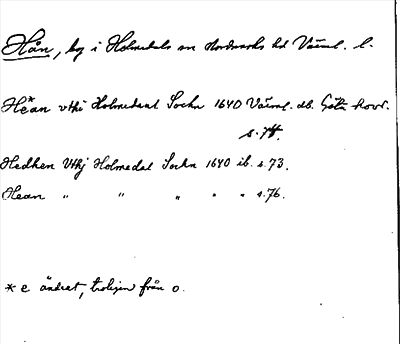 Hån, by i Holmedals sn Nordmarks hd Värml. l.
He*an vthi Holmedaal Sochn 1640 Värml. db. Göta hovr.
s. 74.
Hedhen Vthj Holmedal Sochn 1640 ib. s. 73.
Hean " " " " " s. 76.
* e ändrat, troligen från o.